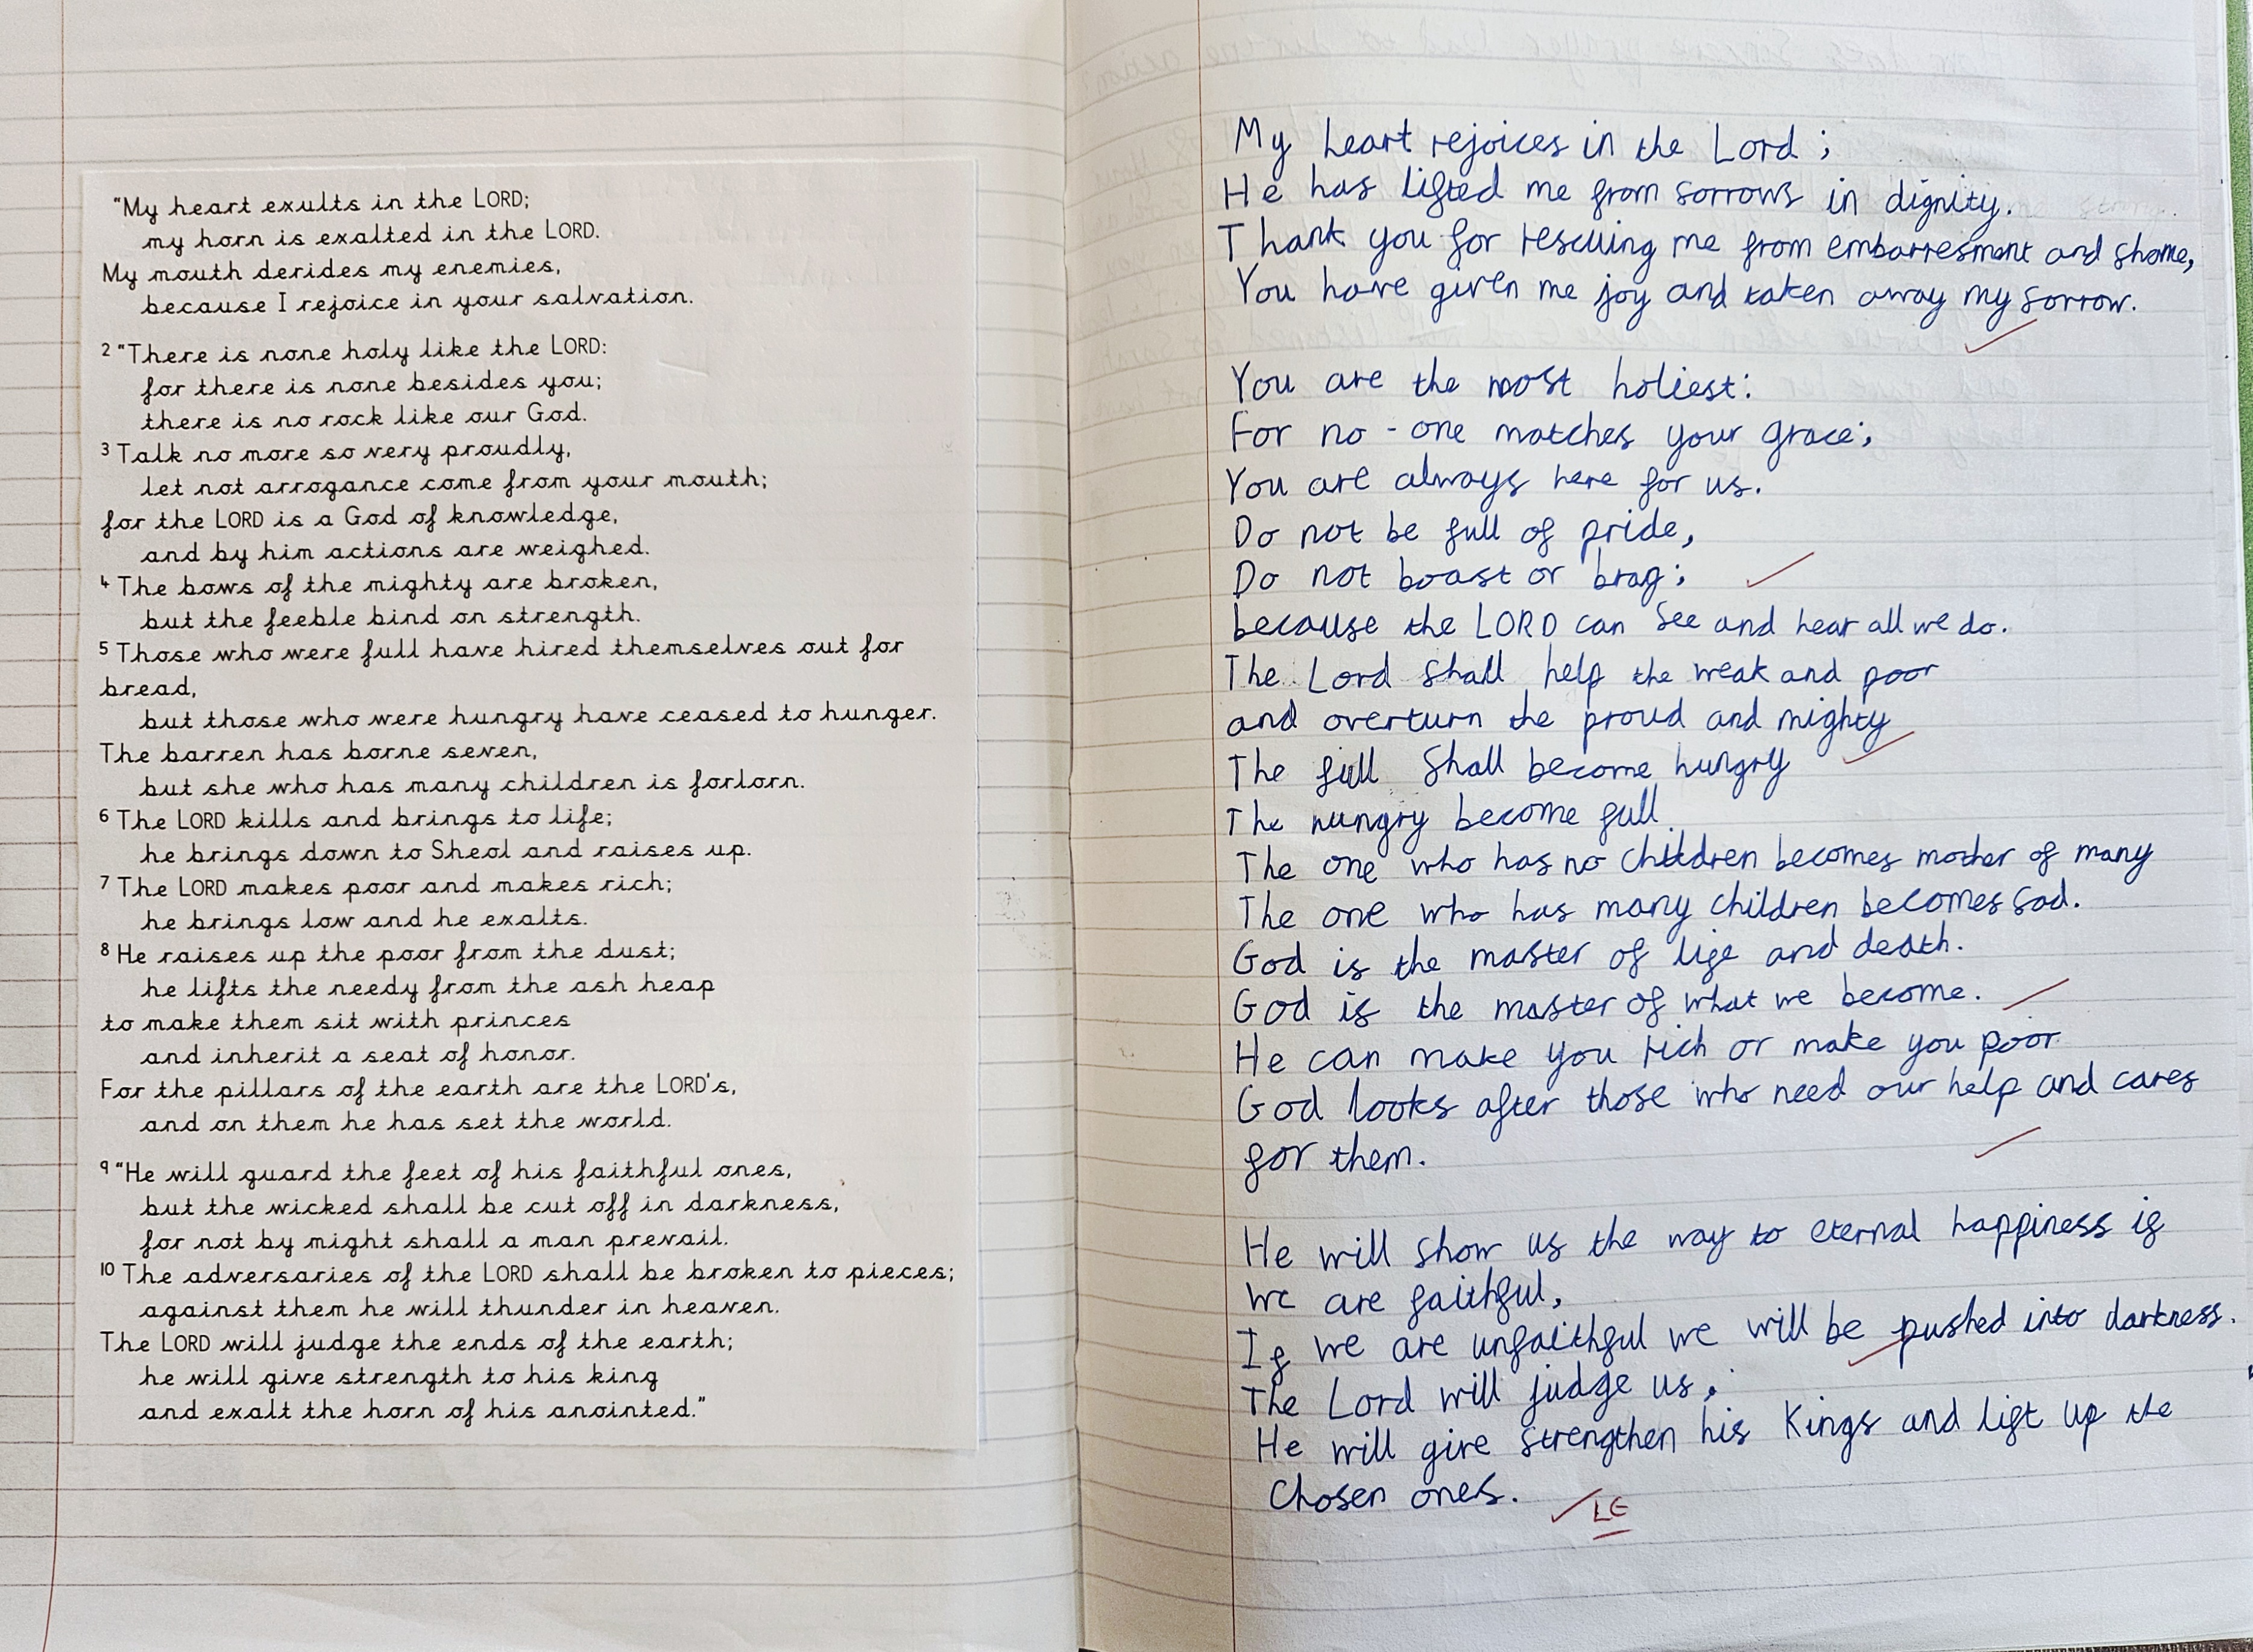 "My heart exults in the LORD;
my horn is exalted in the LORD.
My mouth derides my enemies,
because I rejoice in your salvation.
2 "There is none holy like the LORD:
for there is none besides you;
there is no rock like our God.
3 Talk no more so very proudly,
let not arrogance come from your mouth;
for the LORD is a God of knowledge,
and by him actions are weighed.
4 The bows of the mighty are broken,
but the feeble bind on strength.
5 Those who were full have hired themselves out for
bread,
but those who were hungry have ceased to hunger.
The barren has borne seven,
but she who has many children is forlorn.
6 The LORD kills and brings to life;
he brings down to Sheol and raises up.
7 The LORD makes poor and makes rich;
he brings low and he exalts.
8 He raises up the poor from the dust;
he lifts the needy from the ash heap
to make them sit with princes
and inherit a seat of honor.
For the pillars of the earth are the LORD's,
and on them he has set the world.
9 "He will guard the feet of his faithful ones,
but the wicked shall be cut off in darkness,
for not by might shall a man prevail.
10 The adversaries of the LORD shall be broken to pieces;
against them he will thunder in heaven.
The LORD will judge the ends of the earth;
he will give strength to his king
and exalt the horn of his anointed."
My heart rejoices in the Lord;
He has lifted me from sorrows in dignity.
Thank you for rescuing me from embarresment and shame,
You have given me joy and taken away my sorrow.
You are the most holiest:
For no-one matches your grace;
You are always here for us.
Do not be full of pride,
Do not boast or brag;
because the LORD can see and hear all we do.
The Lord shall help the weak and poor
and overturn the proud and mighty
The full shall become hungry
The hungry become full
The one who has no children becomes mother of many
The one who has many children becomes sad.
God is the master of life and death.
God is the master of what we become.
He can make you rich or make you poor
God looks after those who need our help and cares
for them.
He will show us the way to eternal happiness if
we are faithful,
If we are unfaithful we will be pushed into darkness.
The Lord will judge us,
He will give strengthen his Kings and lift up the
chosen ones.
LE